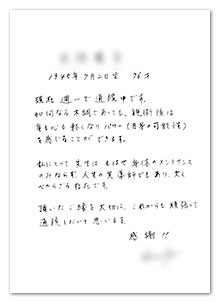 1945年7月2日生 76才
現在 週一で通院中です。
如何なる不調であっても、施術後は
身も心も軽くなりパワー(自身の可能性)
を感じることができます。
私にとって先生は もはや身体のメンテナンス
のみならず 人生の実導師でもあり、欠く
べからざる存在です。
頂いたご縁を大切に、これからも頑張って
通院したいと思います。
感謝!!